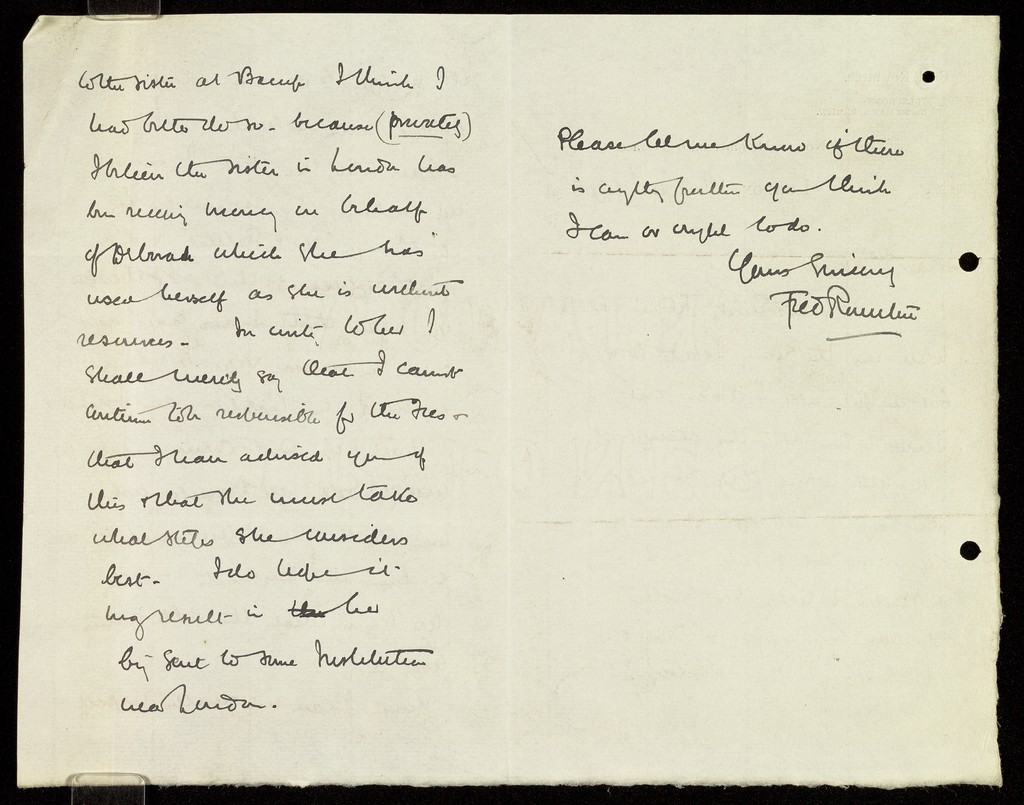 to the sister at Bacup I think I
had better do so - because (privately)
I believe the sister in London has
been receiving money on behalf
of Deborah which she has
used herself as she is without
resources - In writing to her I
shall merely say that I cannot
continue to be responsible for the fees &
that I have advised you of
this & that she must take
what steps she considers
best - I do hope it
may result in her
being sent to some Institution
near London.
Please let me know if there
is anything further you think
I can or ought to do.
Yours Sincerely
Fred